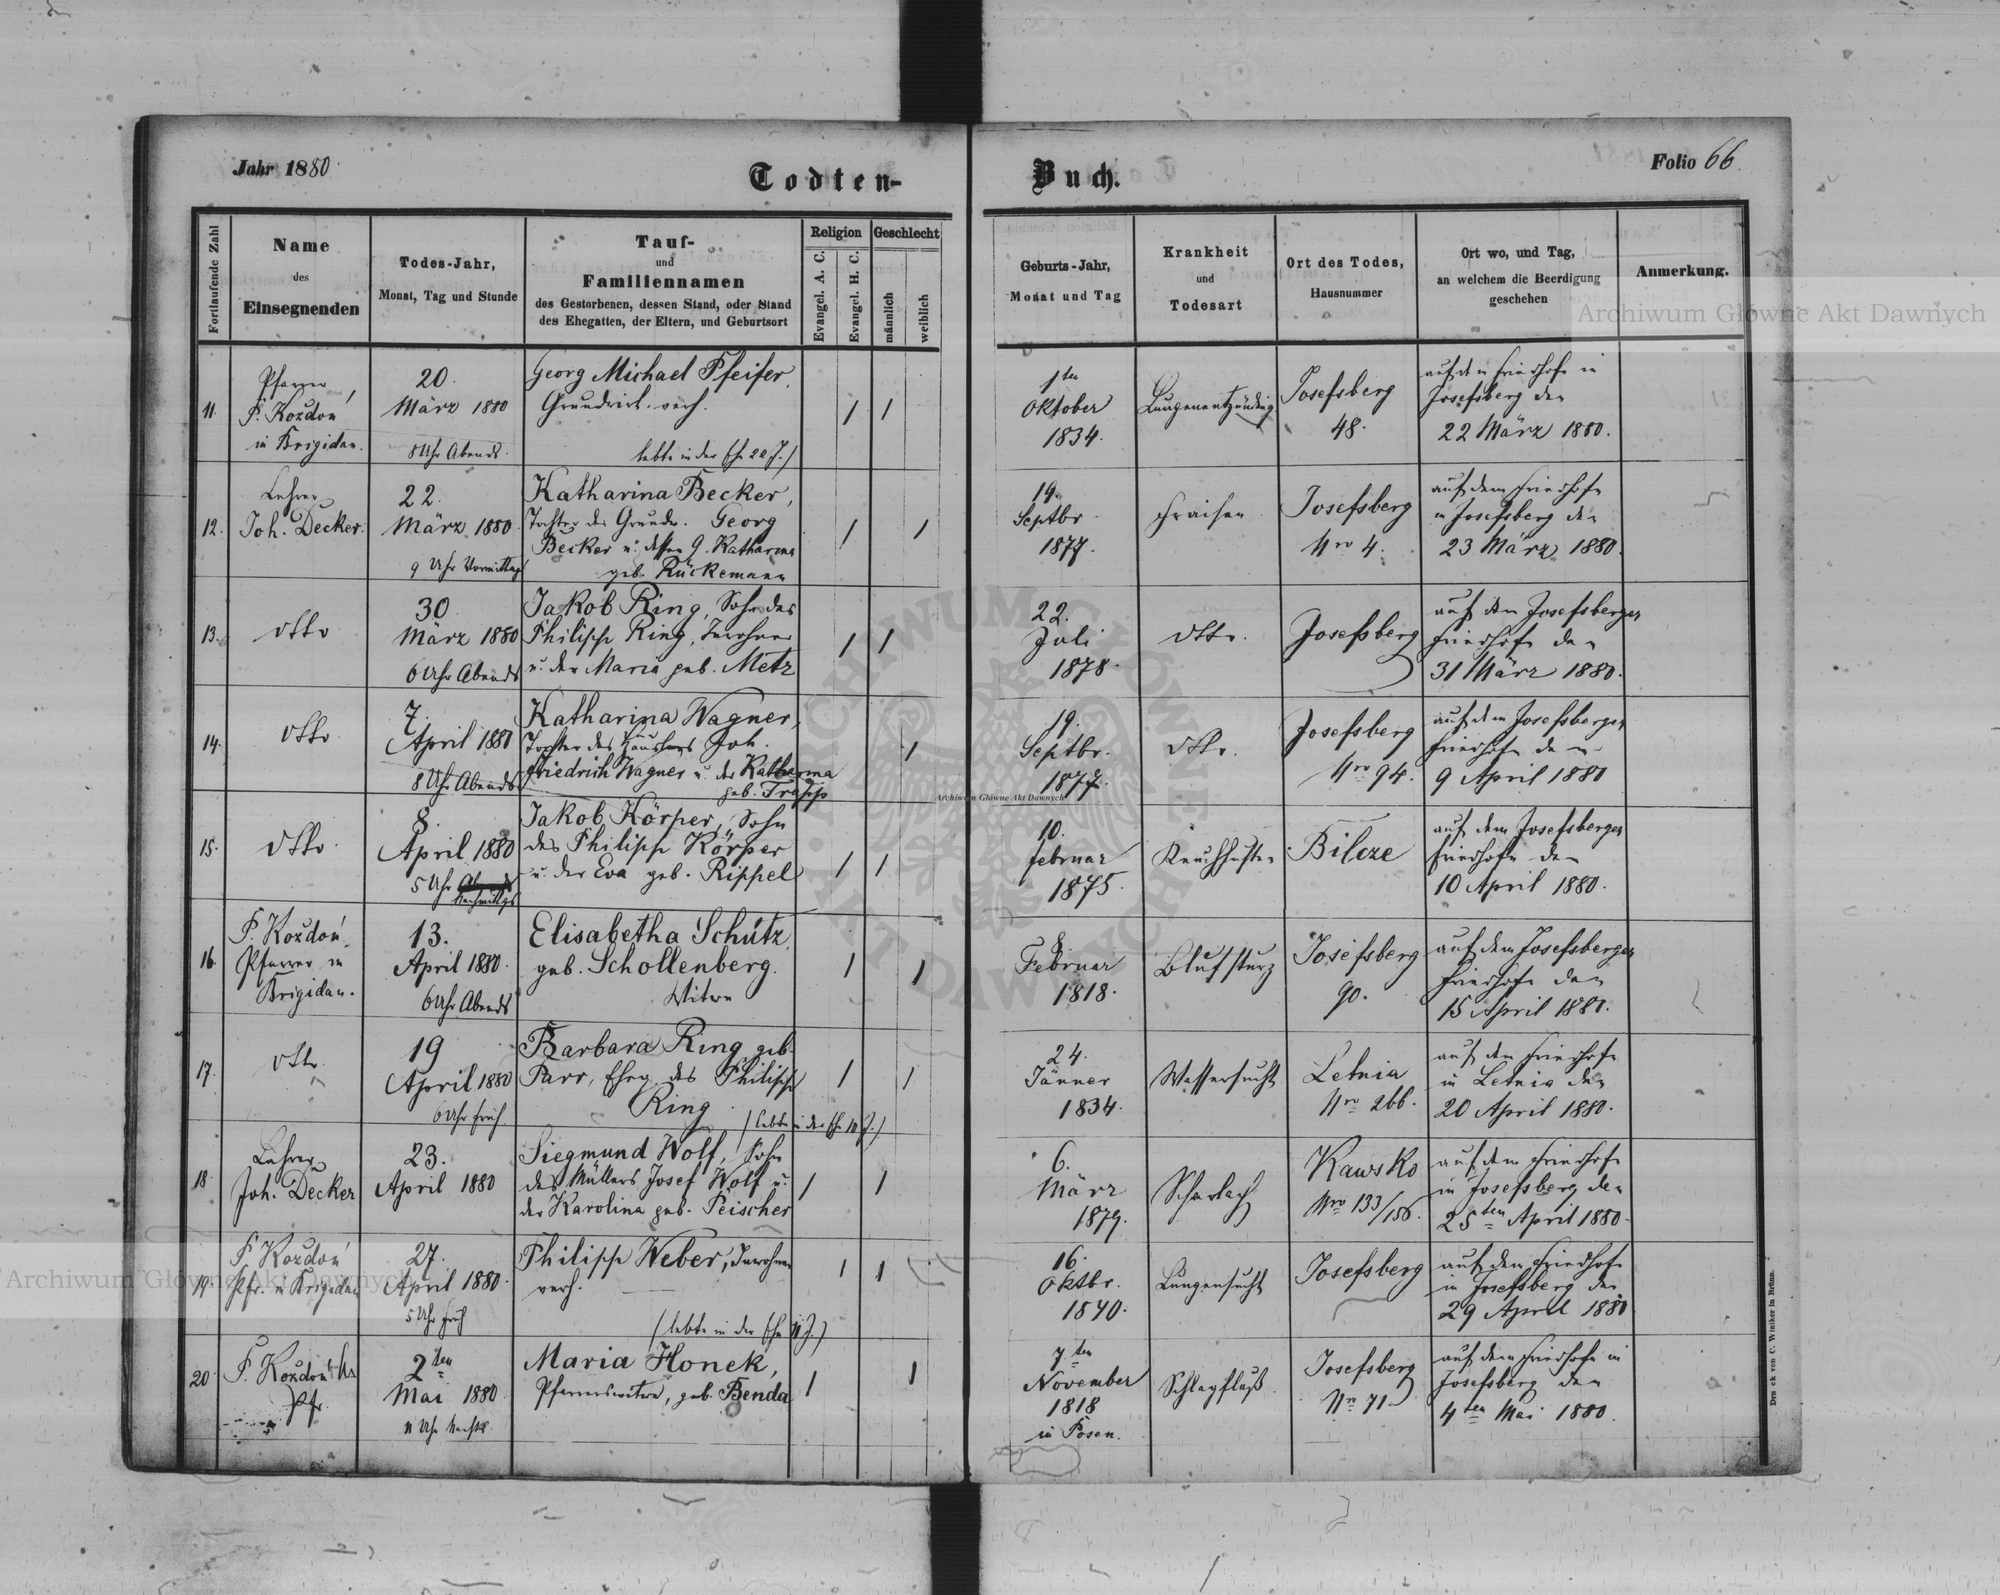 Jahr 1880.
Todten-
Buch.
Folio 66.
Fortlaufende Zahl
Name
des
Einsegnenden
Todes-Jahr,
Monat, Tag und Stunde
Tauf-
und
Familiennamen
des Gestorbenen, dessen Stand, oder Stand
des Ehegatten, der Eltern, und Geburtsort
Religion
Evangel. A. C.
Evangel. H. C.
Geschlecht
männlich
weiblich
Geburts-Jahr,
Monat und Tag
Krankheit
und
Todesart
Ort des Todes,
Hausnummer
Ort wo, und Tag,
an welchem die Beerdigung
geschehen
Anmerkung.
11.
Pfarrer
F. Kozdoń
in Brigidau.
20.
März 1880
8 Uhr Abends.
Georg Michael Pfeifer,
Grundwirt. verh.
lebte in der Ehe 22 J./
1ten
Oktober
1834.
Lungenentzündung
Josefsberg
48.
auf dem Friedhofe in
Josefsberg den
22 März 1880.
12.
Lehrer
Joh. Decker.
22.
März 1880.
9 Uhr Vormittag
Katharina Becker,
Tochter des Grundw. Georg
Becker u. dessen G. Katharina
geb. Rückemann
19.
Septbr.
1877.
Fraisen
Josefsberg
Nro 4.
auf dem Friedhofe
in Josefsberg den
23 März 1880.
13.
dtto
30.
März 1880
6 Uhr Abends
Jakob Ring, Sohn des
Philipp Ring, Inwohner
u. der Maria geb. Metz
22.
Juli
1878.
dtto.
Josefsberg
auf dem Josefsberger
Friedhofe den
31 März 1880.
14.
dtto.
7.
April 1880
8 Uhr Abends
Katharina Wagner,
Tochter des Häuslers Joh.
Friedrich Wagner u. der Katharina
geb. Tropp
19.
Septbr.
1877.
dtto.
Josefsberg
Nro 94.
auf dem Josefsberger
Friedhofe den
9 April 1880
15.
dtto.
8.
April 1880
5 Uhr Abends
Nachmittgs
Jakob Körper, Sohn
des Philipp Körper
u. der Eva geb. Rippel
10.
Februar
1875.
Keuchhusten
Bilcze
auf dem Josefsberger
Friedhofe den
10 April 1880.
16.
F. Kozdoń,
Pfarrer in
Brigidau.
13.
April 1880.
6 Uhr Abends
Elisabetha Schütz,
geb. Schollenberg.
Witwe
8.
Februar
1818.
Blutsturz
Josefsberg
90.
auf dem Josefsberger
Friedhofe den
15 April 1880.
17.
dtto.
19
April 1880
6 Uhr früh.
Barbara Ring geb.
Parr, Eheg. des Philipp
Ring.
/lebte in der Ehe 10 J./
24.
Jänner
1834.
Wassersucht
Letnia
Nro 266.
auf dem Friedhofe
in Letnia den
20 April 1880.
18.
Lehrer
Joh. Decker
23.
April 1880
Siegmund Wolf, Sohn
des Müllers Josef Wolf u.
der Karolina geb. Peischer
6.
März
1879.
Scharlach
Kawsko
Nro 133/156.
auf dem Friedhofe
in Josefsberg den
25ten April 1880.
19.
F. Kozdoń
Pfr. in Brigidau
27.
April 1880.
5 Uhr früh
Philipp Weber, Inwohner
verh.
(lebte in der Ehe 11 J.)
16.
Oktbr.
1840.
Lungensucht
Josefsberg
auf dem Friedhofe
in Josefsberg den
29 April 1880
20.
F. Kozdoń
Pfr.
2ten
Mai 1880.
11 Uhr Nachts.
Maria Honek,
Pfarrerswitwe, geb. Benda
7ten
November
1818
in Posen.
Schlagfluß.
Josefsberg
Nro 71.
auf dem Friedhofe in
Josefsberg den
4ten Mai 1880.
Druck von C. Winiker in Brünn.
Archiwum Główne Akt Dawnych
Archiwum Główne Akt Dawnych
Archiwum Główne Akt Dawnych
ARCHIWUM GŁÓWNE AKT DAWNYCH